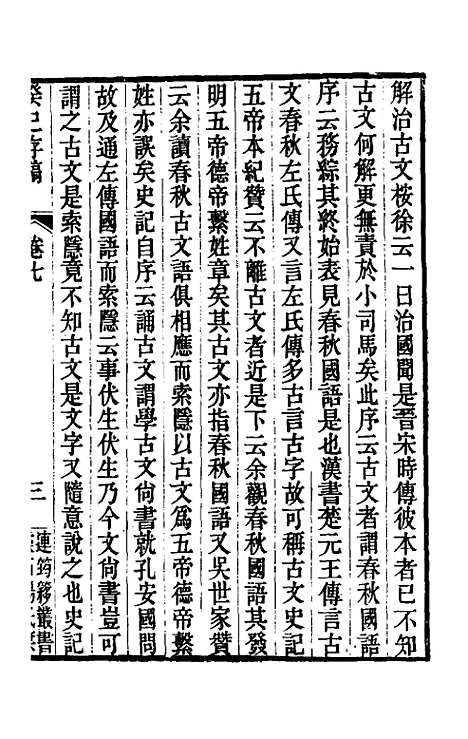 解治古文桉徐云一曰治國聞是晉宋時傳彼本者已不知
古文何解更無責於小司馬矣此序云古文者謂春秋國語
序云務綜其終始表見春秋國語是也漢書楚元王傳言古
文春秋左氏傳又言左氏傳多古言古字故可稱古文史記
五帝本紀贊云不離古文者近是下云余觀春秋國語其發
明五帝德帝繫姓章矣其古文亦指春秋國語又吳世家贊
云余讀春秋古文語俱相應而索隱以古文為五帝德帝繫
姓亦誤矣史記自序云誦古文謂學古文尚書就孔安國問
故及通左傳國語而索隱云事伏生伏生乃今文尚書豈可
謂之古文是索隱竟不知古文是文字又隨意說之也史記
癸巳存稿
卷七
三
連筠簃叢書